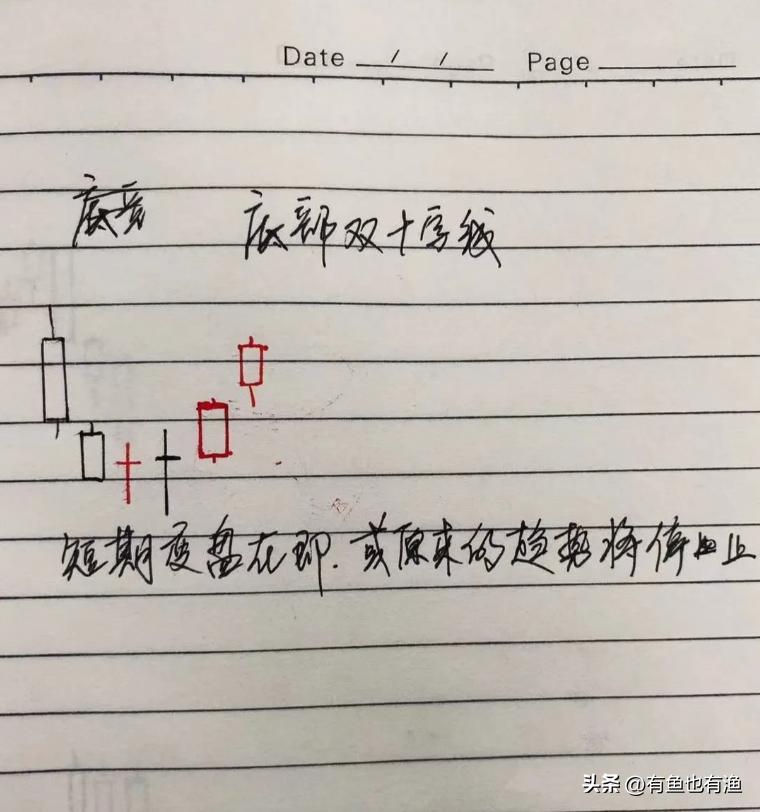 Date / / Page
底部双十字线
短期变盘在即.或原来的趋势将停止
头条 @有鱼也有渔